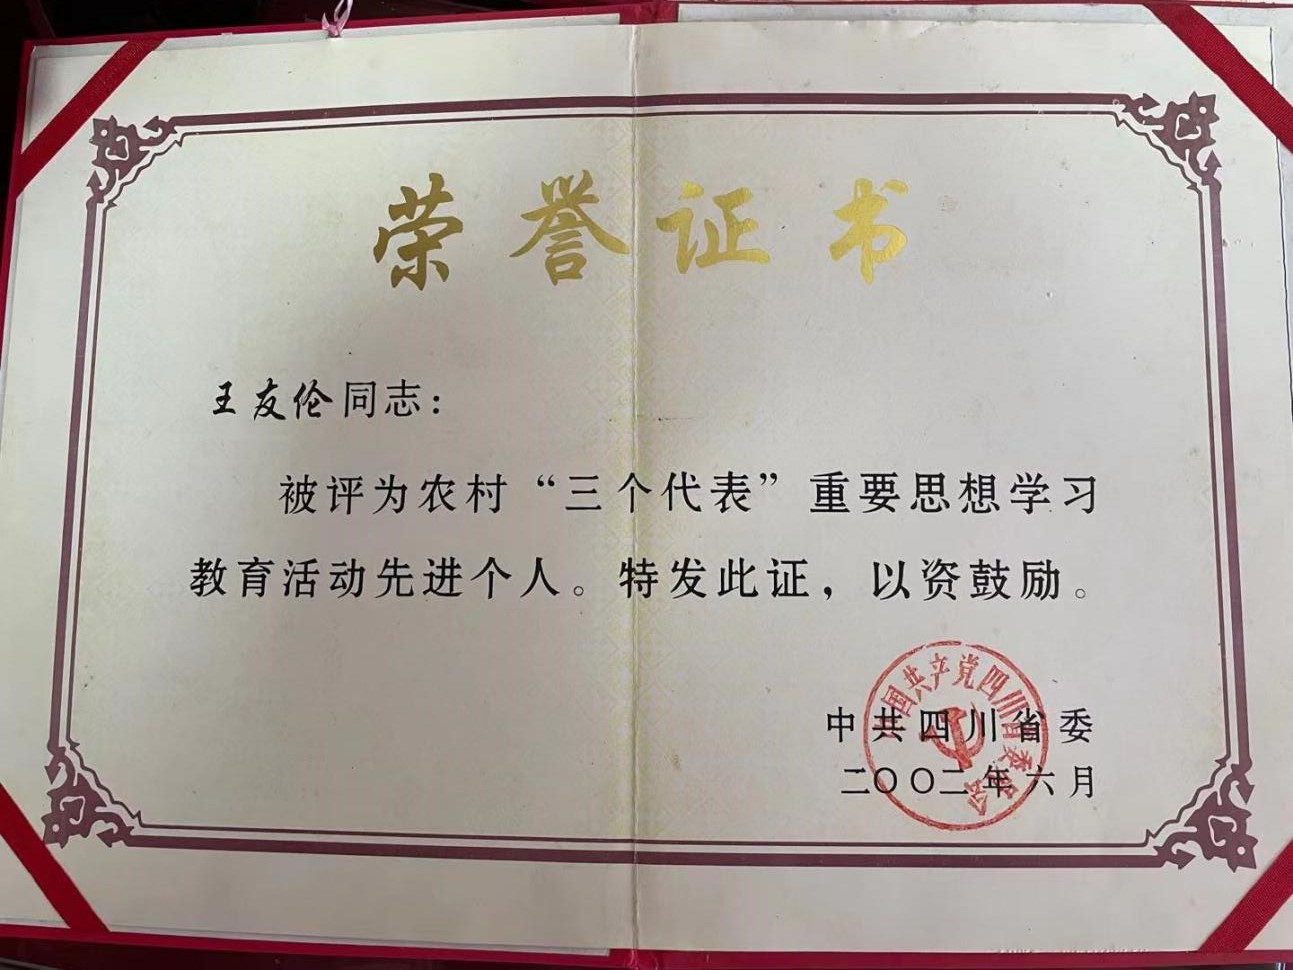 荣誉证书
王友伦同志：
被评为农村“三个代表”重要思想学习
教育活动先进个人。特发此证，以资鼓励。
中共四川省委
二〇〇二年六月
中国共产党四川省委员会